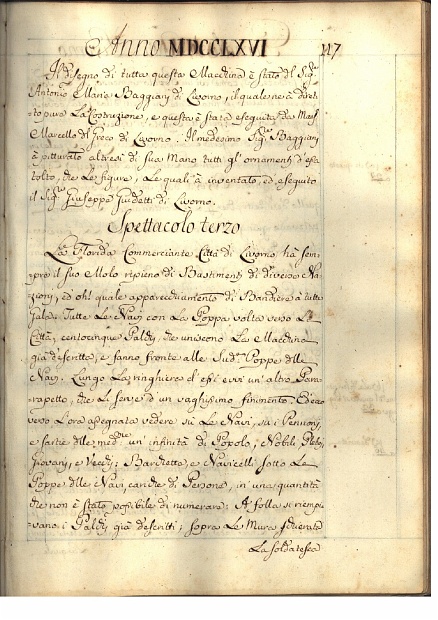 Anno MDCCLXVI 117
Il disegno di tutta questa Macchina è stato del Sigr
Antonio Maria Baggiani di Livorno, il quale ne à diret
to pure La Costruzione, e questa è stata eseguita da
Marcello del Greco di Livorno. Il medesimo Sigr Baggiani
à pitturato altresì di sua Mano tutti gl'ornamenti d'essa
tolto, che Le figure, Le quali à inventato, ed eseguito
il Sigr Giuseppe Guidetti di Livorno.
Spettacolo terzo
La Florida Commerciante Città di Livorno hà sem
pre il suo Molo ripieno di Bastimenti di diverse Na
zioni, ed oh! quale apparecchiamento di Bandiere à tutta
gala. Tutte Le Navi con La Poppa volta verso La
Città, centocinque Palchi, che uniscono La Macchina
già descritta, e fanno fronte alle Sudte Poppe delle
Navi. Lungo La ringhiera d'essi evvi un'altro Para
rapetto, che Li serve di un vaghissimo finimento. Ed ecco
verso L'ora assegnata vedere sù Le Navi, sù i Pennoni,
e sartie delle medme un'infinità di Popolo, Nobili, Plebei,
Giovani, e Vecchi; Barchette, e Navicelli sotto Le
Poppe delle Navi, cariche di Persone, in una quantità
che non è stato possibile di numerare: A folla si riempi
vano i Palchi già descritti; sopra Le Mura
La soldatesca